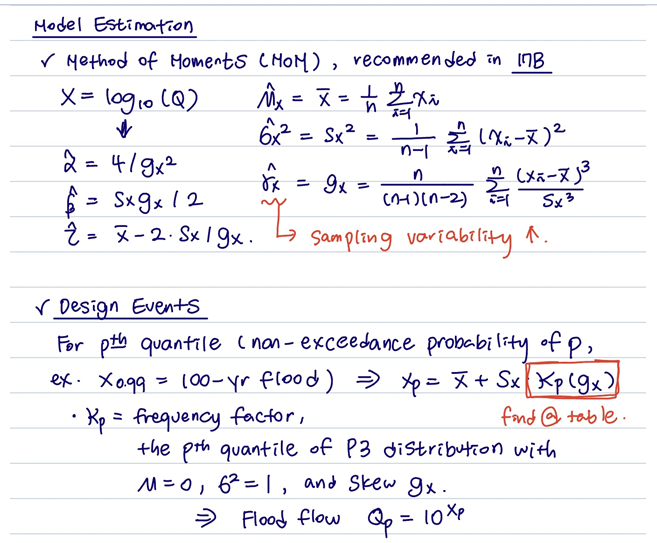 Model Estimation
✓ Method of Moments (MoM), recommended in 17B
X = log₁₀(Q)
↓
α̂ = 4/gx²
β̂ = Sxgx/2
τ̂ = x̄ - 2·Sx/gx.
μ̂x = x̄ = 1/n Σᵢ₌₁ⁿ xᵢ
σ̂x² = Sx² = 1/(n-1) Σᵢ₌₁ⁿ (xᵢ-x̄)²
γ̂x = gx = n/((n-1)(n-2)) Σᵢ₌₁ⁿ (xᵢ-x̄)³/Sx³
↳ sampling variability ↑.
✓ Design Events
For pth quantile (non-exceedance probability of p,
ex. X0.99 = 100-yr flood) ⇒ xp = x̄ + Sx Kp(gx)
find @ table.
· Kp = frequency factor,
the pth quantile of P3 distribution with
μ=0, σ²=1, and skew gx.
⇒ Flood flow Qp = 10^xp